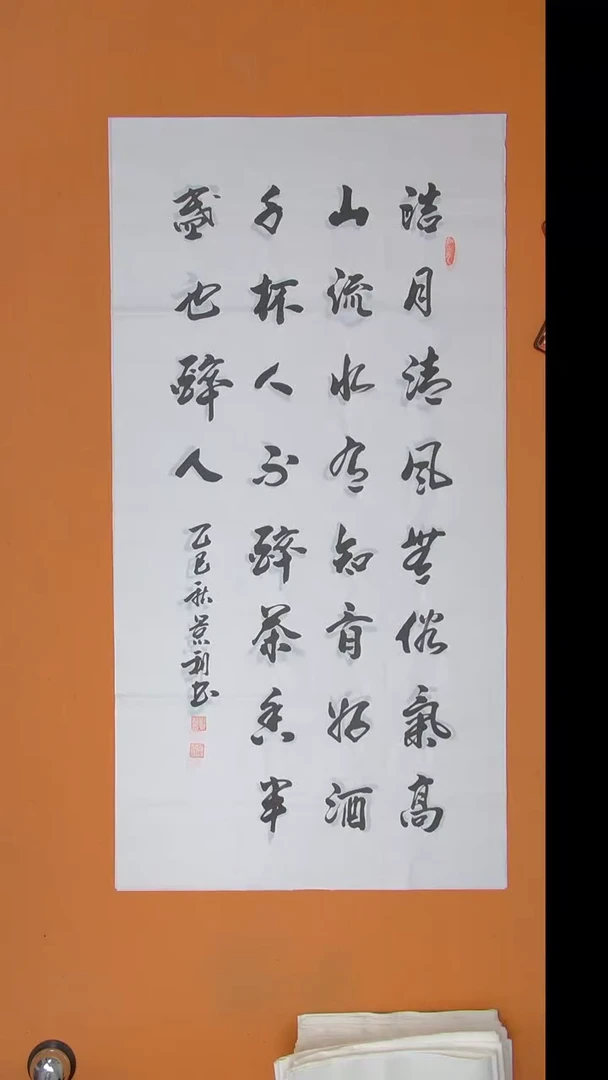 洁月清风無俗氣高
山流水有知音好酒
千杯人不醉茶香半
盏也醉人
乙巳秋景利书